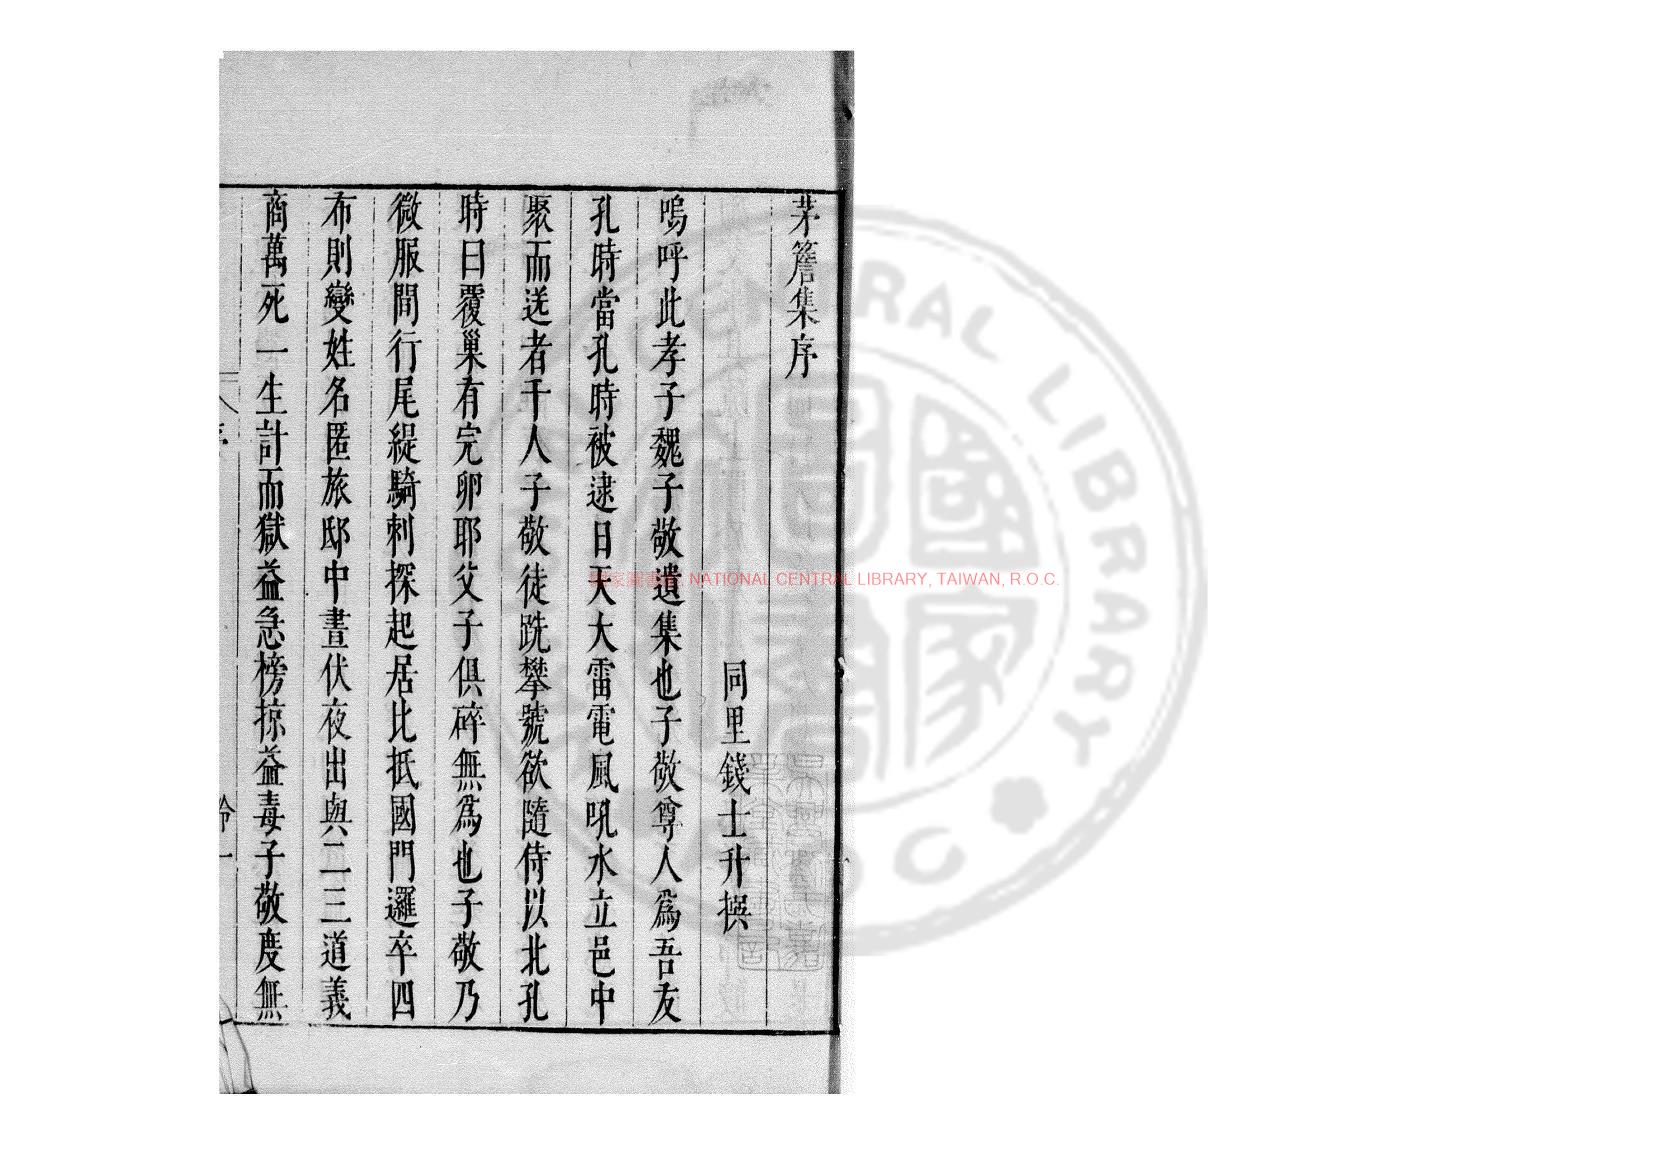 茅簷集序
同里錢士升撰
嗚呼此孝子魏子敬遺集也子敬尊人爲吾友
孔時當孔時被逮日天大雷電風吼水立邑中
聚而送者千人子敬徒跣攀號欲隨侍以北孔
時曰覆巢有完卵耶父子俱碎無爲也子敬乃
微服間行尾緹騎刺探起居比抵國門邏卒四
布則變姓名匿旅邸中晝伏夜出與二三道義
商萬死一生計而獄益急榜掠益毒子敬度無
國家圖書館 NATIONAL CENTRAL LIBRARY, TAIWAN, R.O.C.